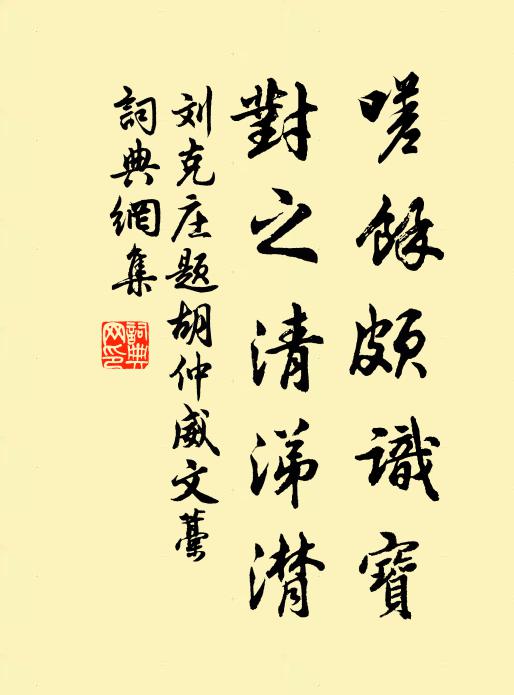 嗟餘頗識寶
對之清涕潸
刘克庄题胡仲威文藁
詞典網集
詞典网印